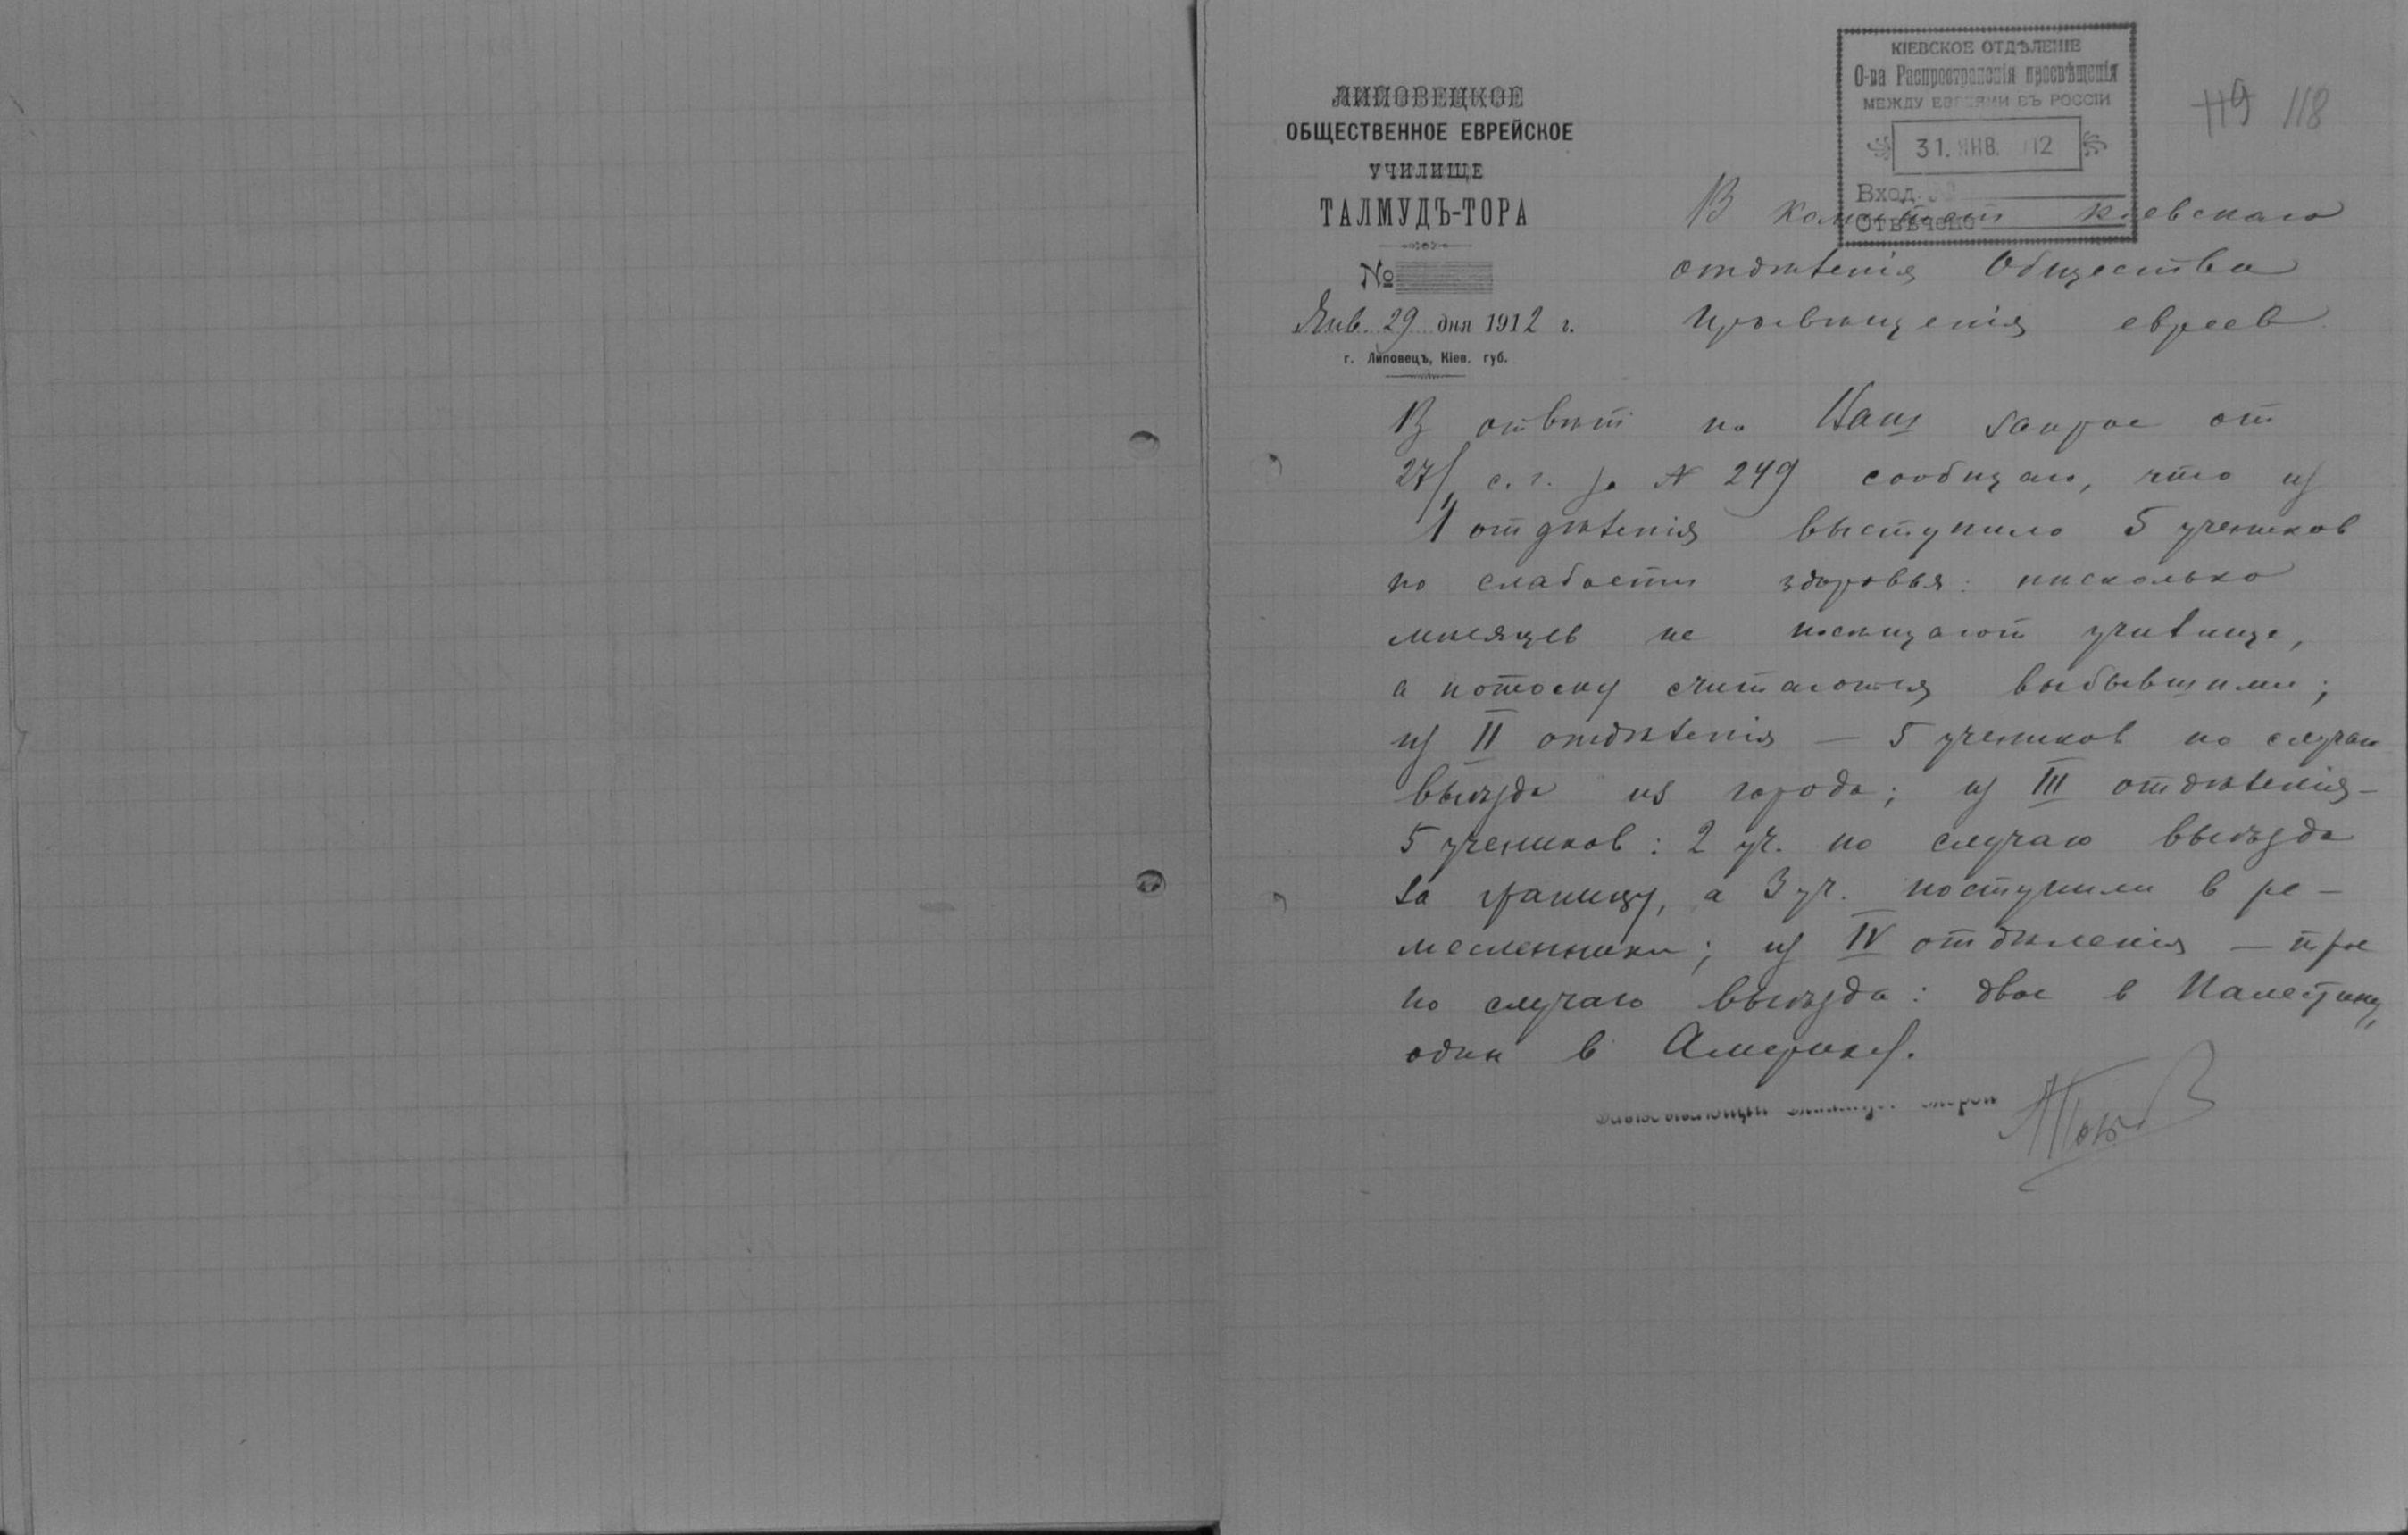 КІЕВСКОЕ ОТДѢЛЕНІЕ
О-ва Распространенія просвѣщенія
МЕЖДУ ЕВРЕЯМИ ВЪ РОССІИ
31. ЯНВ. 12
Вход.
Отвѣчено
119 118
ЛИПОВЕЦКОЕ
ОБЩЕСТВЕННОЕ ЕВРЕЙСКОЕ
УЧИЛИЩЕ
ТАЛМУДЪ-ТОРА
№
Янв. 29 дня 1912 г.
г. Липовецъ, Кіев. губ.
В комитет Кіевскаго
отдѣленія Общества
просвѣщенія евреев
В отвѣт на Ваш запрос от
27/1 с. г. за № 249 сообщаю, что из
I отдѣленія выступило 5 учеников
по слабости здоровья: нѣсколько
мѣсяцев не посѣщают училище,
а потому считаются выбывшими;
из II отдѣленія — 5 учеников по случаю
выѣзда из города; из III отдѣленія —
5 учеников: 2 уч. по случаю выѣзда
за границу, а 3 уч. поступили в ре-
месленники; из IV отдѣленія — трое
по случаю выѣзда: двое в Палестину,
один в Америку.
Завѣдывающій Талмудъ-Торой